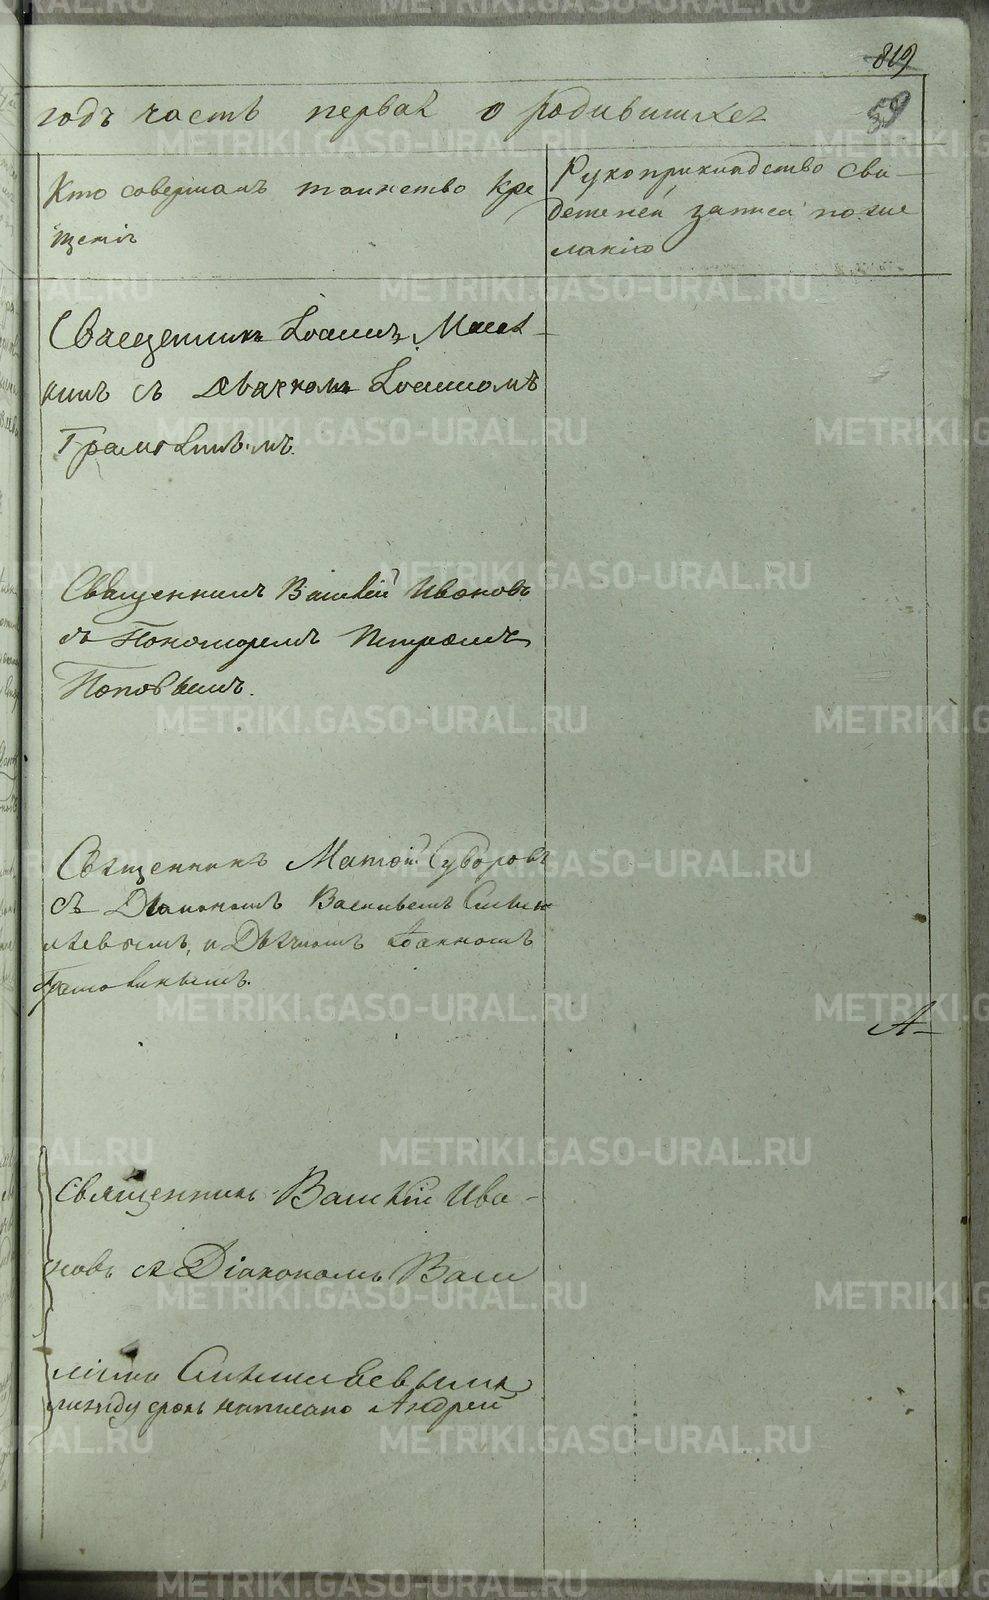 819
59
годъ часть первая о родившихся
Кто совершалъ таинство кре
щенія
Рукоприкладство сви-
детелей записи по же
ланію
Священникъ Іоаннъ
съ Дьячкомъ Іоанномъ
Священникъ Василій Ивановъ
съ Пономоремъ Петромъ
Поповымъ.
Священникъ Матѳій Суворовъ
съ Діакономъ Васильемъ
и Дьячкомъ Іоанномъ
А-
Священникъ Василій Ива-
новъ съ Діакономъ Васи
между срокъ написано Андрей
METRIKI.GASO-URAL.RU